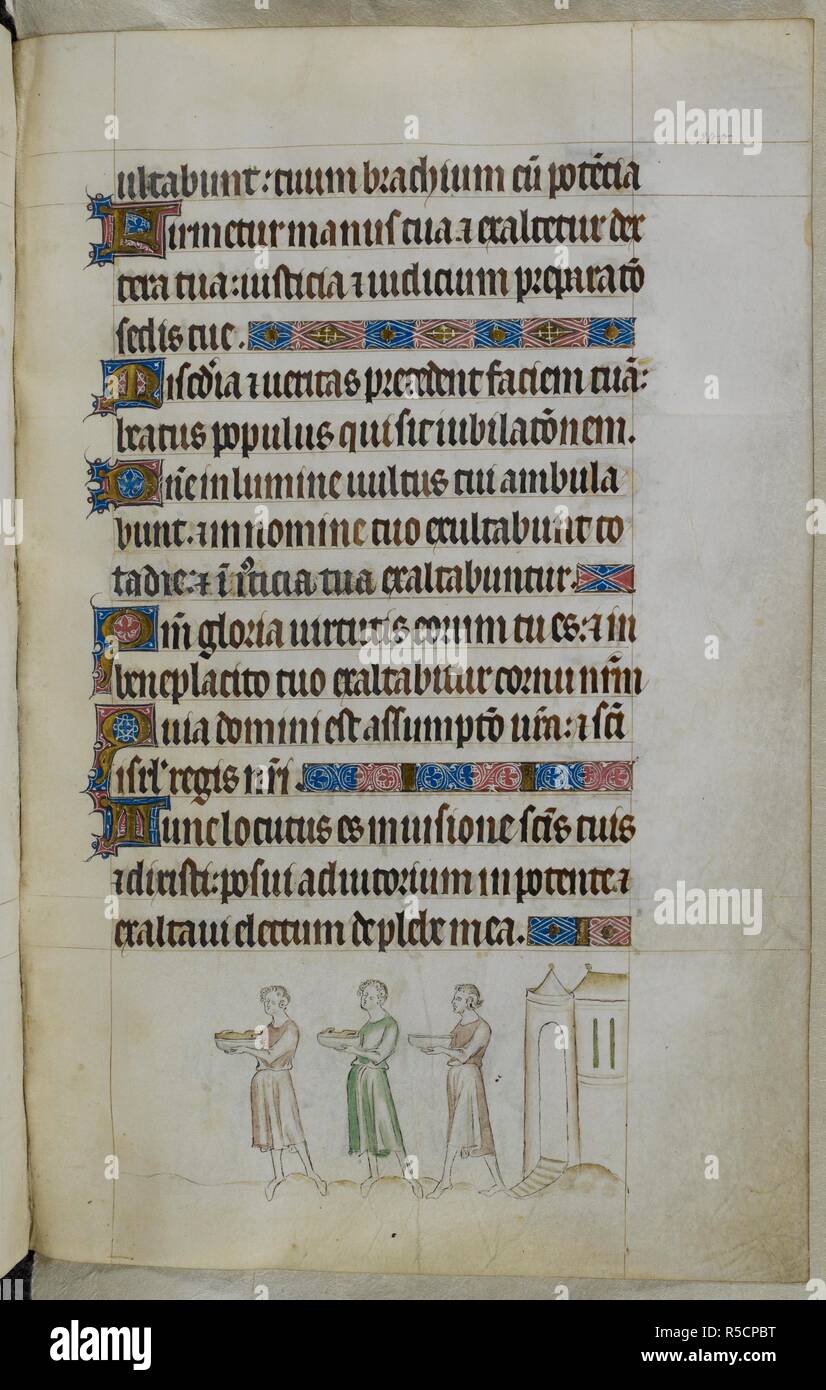 ultabunt: tuum brachium cū potēcia
Firmetur manus tua ⁊ exaltetur dex
tera tua: iusticia ⁊ iudicium preparatō
sedis tue.
Miscd'ia ⁊ ueritas precedent faciem tuā:
beatus populus qui sit iubilatōnem.
Dn̄e in lumine uultus tui ambula
bunt. ⁊ in nomine tuo exultabunt to
ta die: ⁊ ī iusticia tua exaltabuntur.
Qm̄ gloria uirtutis eorum tu es: ⁊ in
beneplacito tuo exaltabitur cornu nrm̄
Quia domini est assumptō nr̄a: ⁊ sc̄i
isrl' regis nr̄i.
Tunc locutus es in uisione sc̄is tuis
⁊ dixisti: posui adiutorium in potente ⁊
exaltaui electum de plebe mea.
alamy
alamy
alamy
Image ID: R5CPBT
www.alamy.com